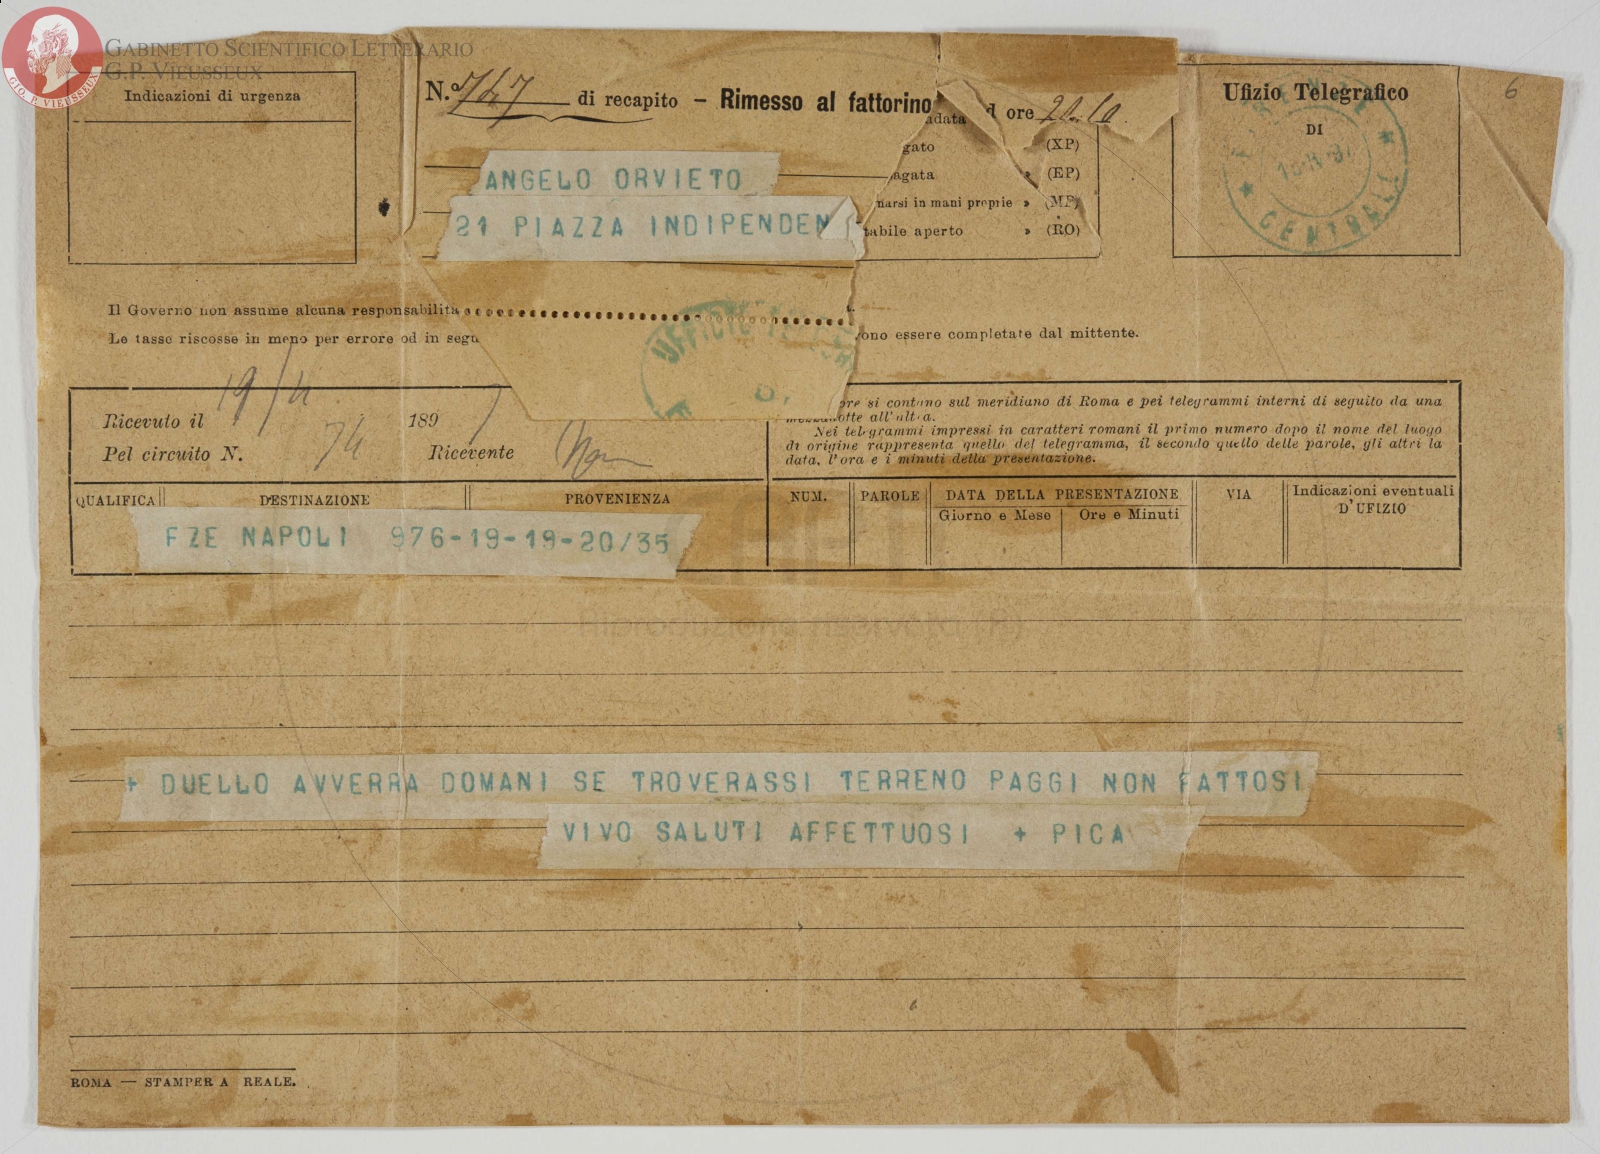 GABINETTO SCIENTIFICO LETTERARIO
G.P. VIEUSSEUX
GIO. P. VIEUSSEUX
Indicazioni di urgenza
N.º 747 di recapito - Rimesso al fattorino
d ore 20.10
6
Ufizio Telegrafico
DI
CENTRALE
ANGELO ORVIETO
21 PIAZZA INDIPENDEN
gato (XP)
agata » (EP)
narsi in mani proprie » (MP)
tabile aperto » (RO)
Il Governo non assume alcuna responsabilità
Le tasse riscosse in meno per errore od in segu
vono essere completate dal mittente.
UFFICIO
Ricevuto il 19/4 1897
Pel circuito N. 74 Ricevente
ore si contano sul meridiano di Roma e pei telegrammi interni di seguito da una
mezzanotte all'altra.
Nei telegrammi impressi in caratteri romani il primo numero dopo il nome del luogo
di origine rappresenta quello del telegramma, il secondo quello delle parole, gli altri la
data, l'ora e i minuti della presentazione.
QUALIFICA DESTINAZIONE PROVENIENZA NUM. PAROLE DATA DELLA PRESENTAZIONE VIA Indicazioni eventuali
D'UFIZIO
Giorno e Mese Ore e Minuti
FZE NAPOLI 976-19-19-20/35
+ DUELLO AVVERRA DOMANI SE TROVERASSI TERRENO PAGGI NON FATTOSI
VIVO SALUTI AFFETTUOSI + PICA
ROMA — STAMPER A REALE.